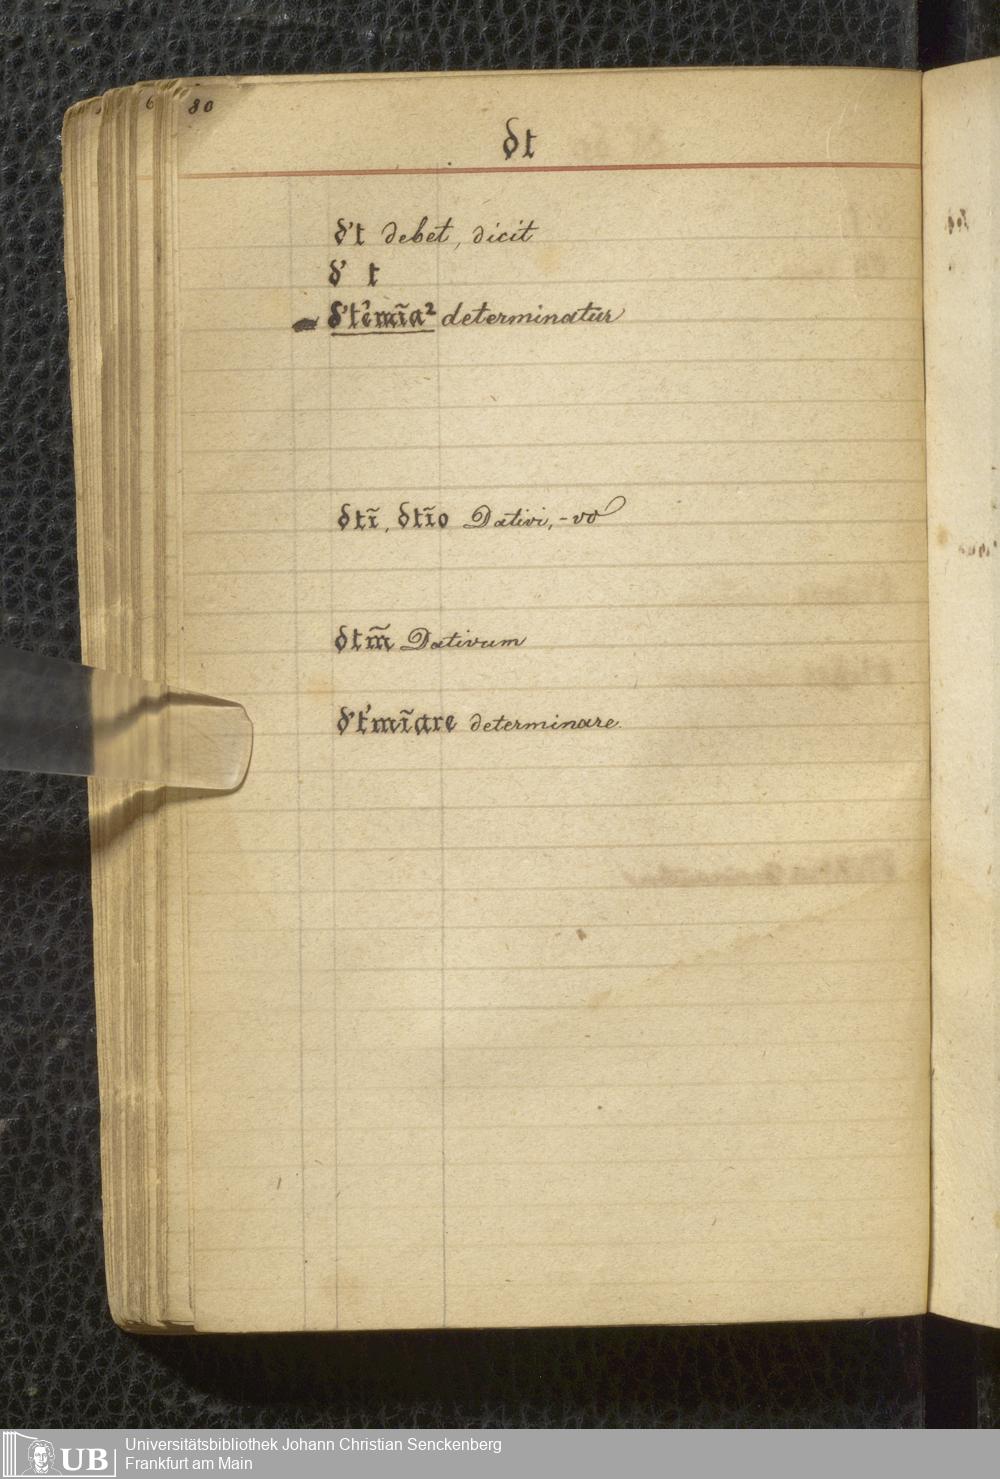 80
dt
d't debet, dicit
d' t
d't'mĩa² determinatur
dtĩ, dtĩo Dativi, -vo
dtm̃ Dativum
d't'mĩare determinare.
UB Universitätsbibliothek Johann Christian Senckenberg
Frankfurt am Main